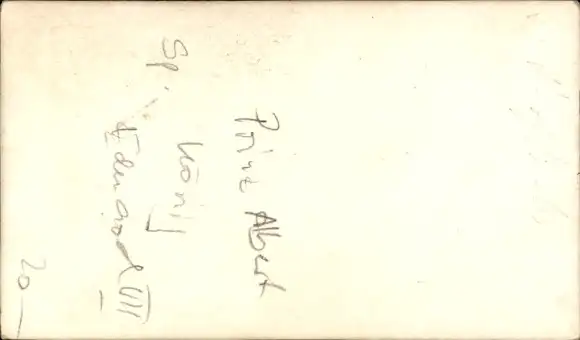 Prinz Albert
Sp. König
Eduard VII
20—